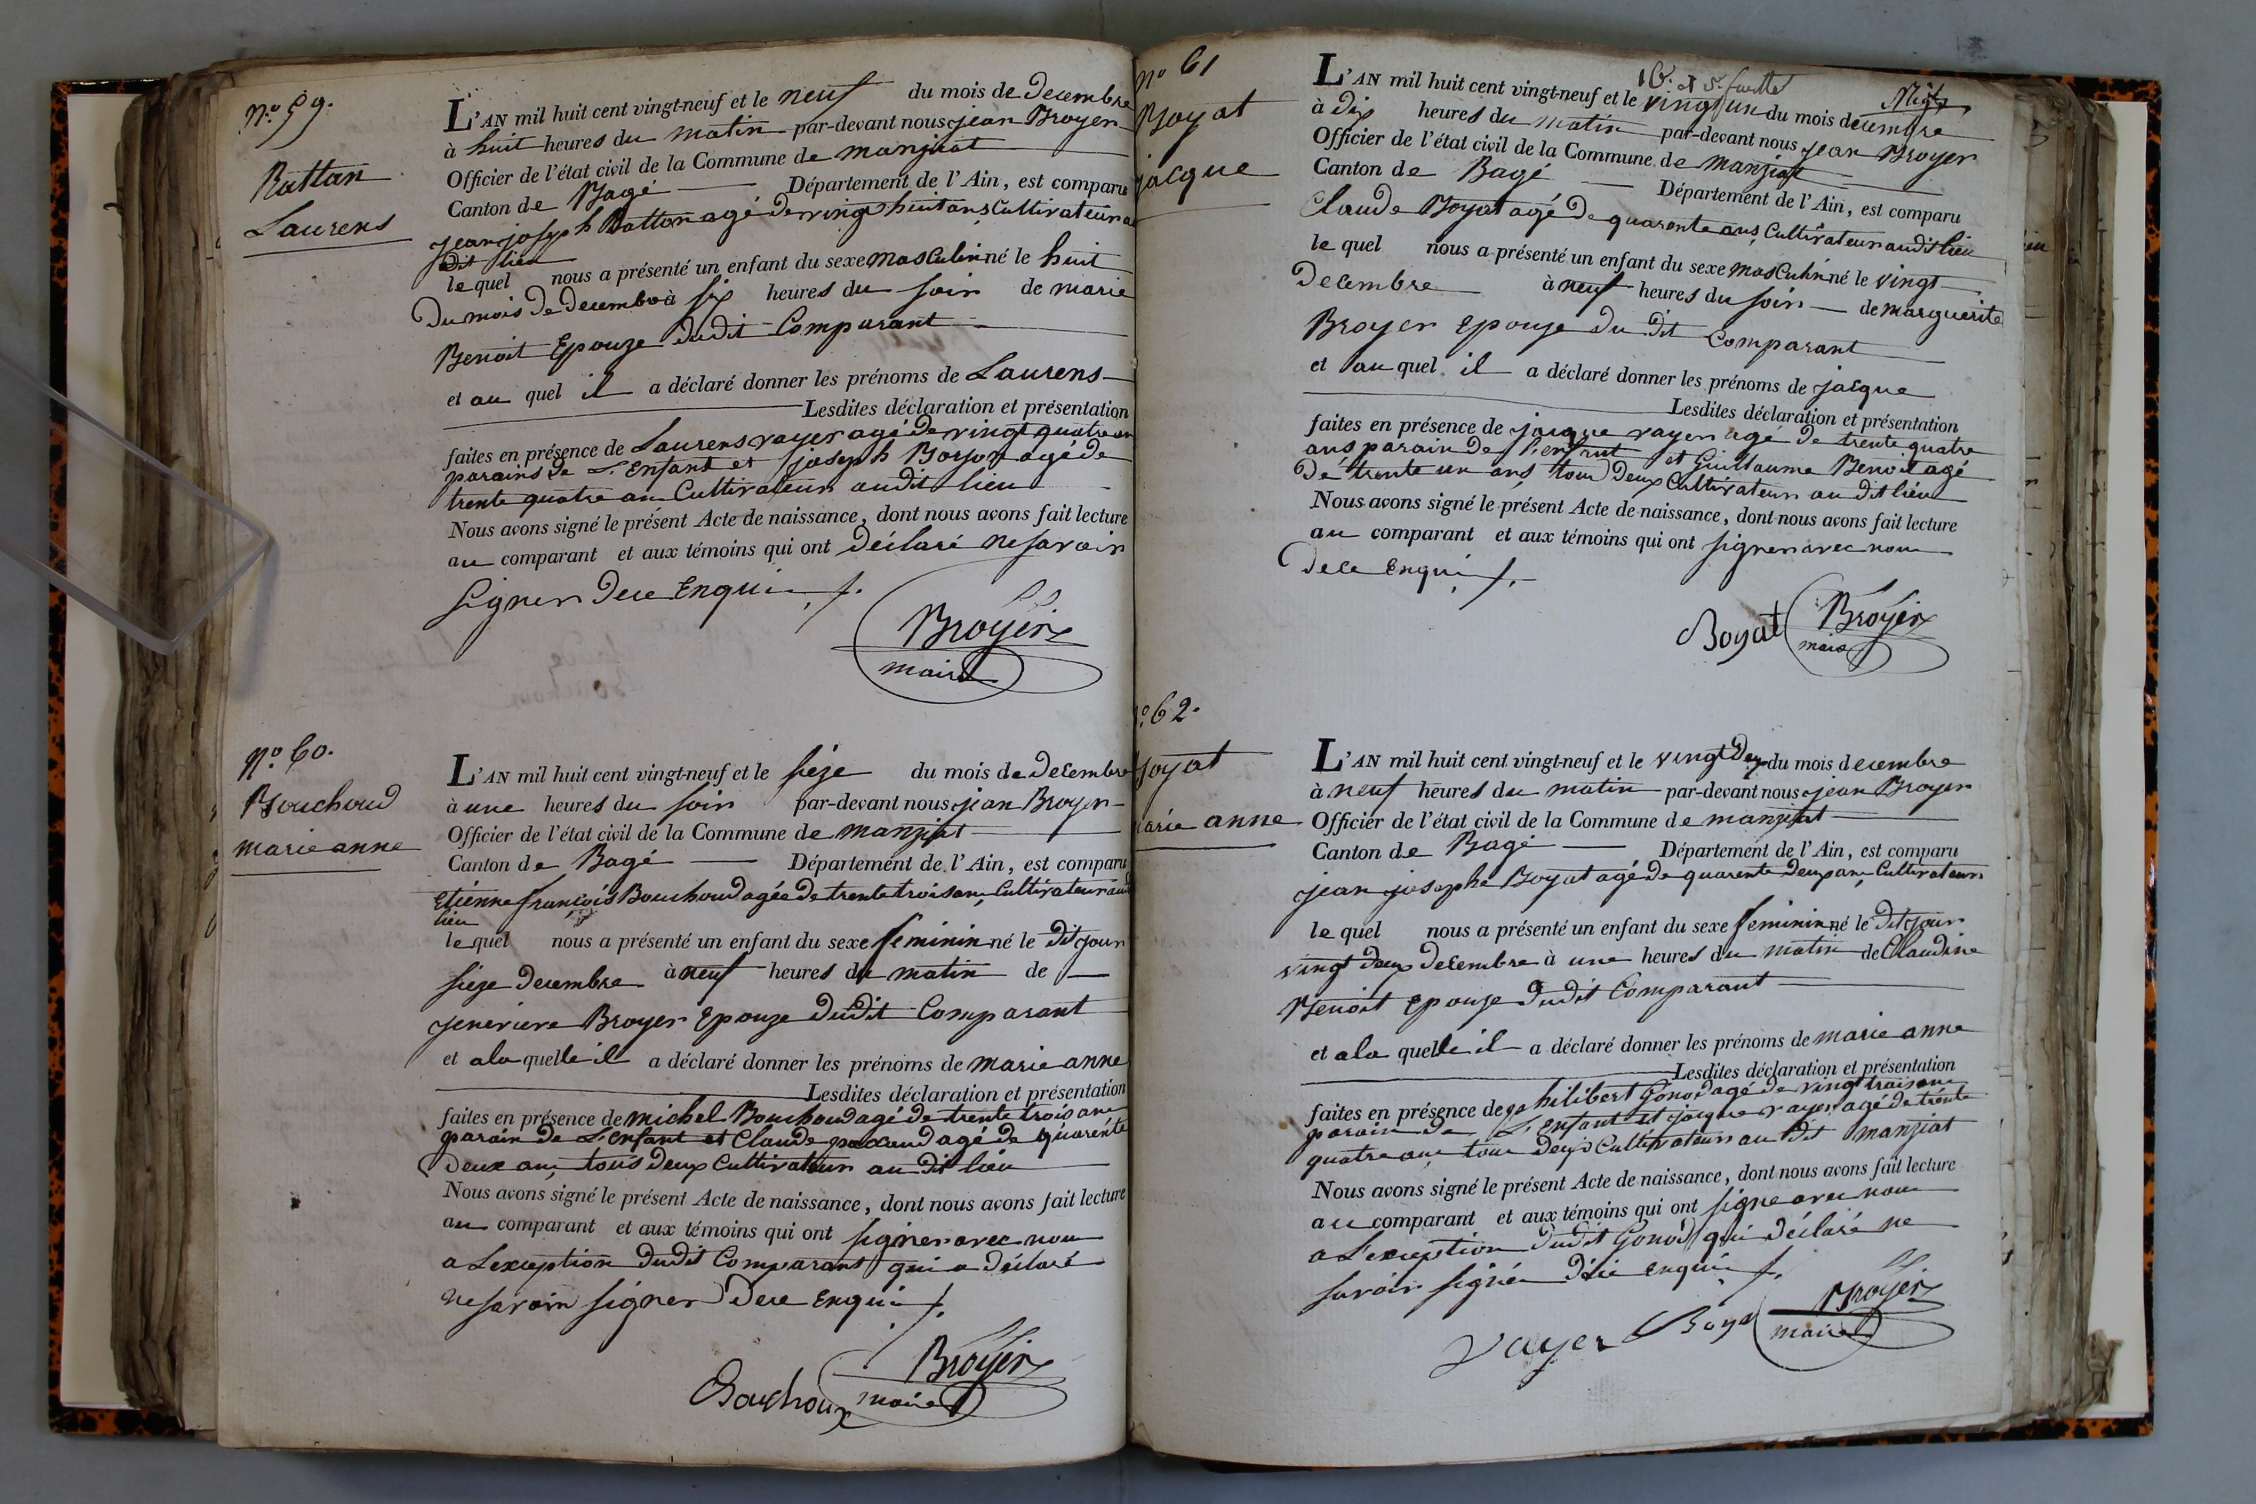 No. 59.
Battan
Laurens
L'AN mil huit cent vingt-neuf et le neuf du mois de Decembre
à huit heures du matin par-devant nous jean Broyer
Officier de l'état civil de la Commune de manziat
Canton de Bagé Département de l'Ain, est comparu
jean joseph Battan agé de vingt huit ans Cultivateur au
dit lieu
le quel nous a présenté un enfant du sexe masculin né le huit
du mois de decembre à six heures du soir de marie
Benoit Epouze dudit Comparant
et au quel il a déclaré donner les prénoms de Laurens
Lesdites déclaration et présentation
faites en présence de Laurens vayer agé de vingt quatre an
parains de L'Enfant et joseph Boyat agé de
trente quatre an Cultivateur audit lieu
Nous avons signé le présent Acte de naissance, dont nous avons fait lecture
au comparant et aux témoins qui ont déclaré ne savoir
signer dece Enqui
Broyer
maire
No. 60.
Bouchoud
marie anne
L'AN mil huit cent vingt-neuf et le sieze du mois de Decembre
à une heures du soir par-devant nous jean Broyer
Officier de l'état civil de la Commune de manziat
Canton de Bagé Département de l'Ain, est comparu
Etienne françois Bouchoud agée de trente trois an Cultivateur aud
lieu
le quel nous a présenté un enfant du sexe feminin né le dit jour
sieze decembre à neuf heures du matin de
genevieve Broyer Epouze dudit Comparant
et a la quelle il a déclaré donner les prénoms de marie anne
Lesdites déclaration et présentation
faites en présence de michel Bouchoud agé de trente trois ans
parain de L'enfant et Claude agé de quarente
deux an tous deux Cultivateur au dit lieu
Nous avons signé le présent Acte de naissance, dont nous avons fait lecture
au comparant et aux témoins qui ont signer avec nous
a L'exception dudit Comparant qui a déclaré
ne savoir signer dece Enqui
Bouchoux
Broyer
maire
No 61
Boyat
jacque
L'AN mil huit cent vingt-neuf et le vingt un du mois decembre
à dix heures du matin par-devant nous jean Broyer
Officier de l'état civil de la Commune de manziat
Canton de Bagé Département de l'Ain, est comparu
Claude Boyat agé de quarente ans Cultivateur audit lieu
le quel nous a présenté un enfant du sexe masculin né le vingt
decembre à neuf heures du soir de marguerite
Broyer epouze du dit Comparant
et au quel il a déclaré donner les prénoms de jacque
Lesdites déclaration et présentation
faites en présence de jacque vayer agé de trente quatre
ans parain de l'enfant et Guillaume Benoit agé
de trente un ans tous deux Cultivateur au dit lieu
Nous avons signé le présent Acte de naissance, dont nous avons fait lecture
au comparant et aux témoins qui ont signer avec nous
dece Enqui
Boyat
Broyer
maire
o. 62.
oyat
arie anne
L'AN mil huit cent vingt-neuf et le vingt deux du mois decembre
à neuf heures du matin par-devant nous jean Broyer
Officier de l'état civil de la Commune de manziat
Canton de Bagé Département de l'Ain, est comparu
jean josephe Boyat agé de quarente deux ans Cultivateur
le quel nous a présenté un enfant du sexe feminin né le dit jour
vingt deux decembre à une heures du matin de Claudine
Benoit epouze dudit Comparant
et a la quelle il a déclaré donner les prénoms de marie anne
Lesdites déclaration et présentation
faites en présence de philibert Gonod agé de vingt trois ans
parain de L'enfant et jacque vayer agé de trente
quatre ans tous deux Cultivateur au dit manziat
Nous avons signé le présent Acte de naissance, dont nous avons fait lecture
au comparant et aux témoins qui ont signe avec nous
a L'exception dudit Gonod qui déclaré ne
savoir signer Enqui
vayer
Boyat
Broyer
maire